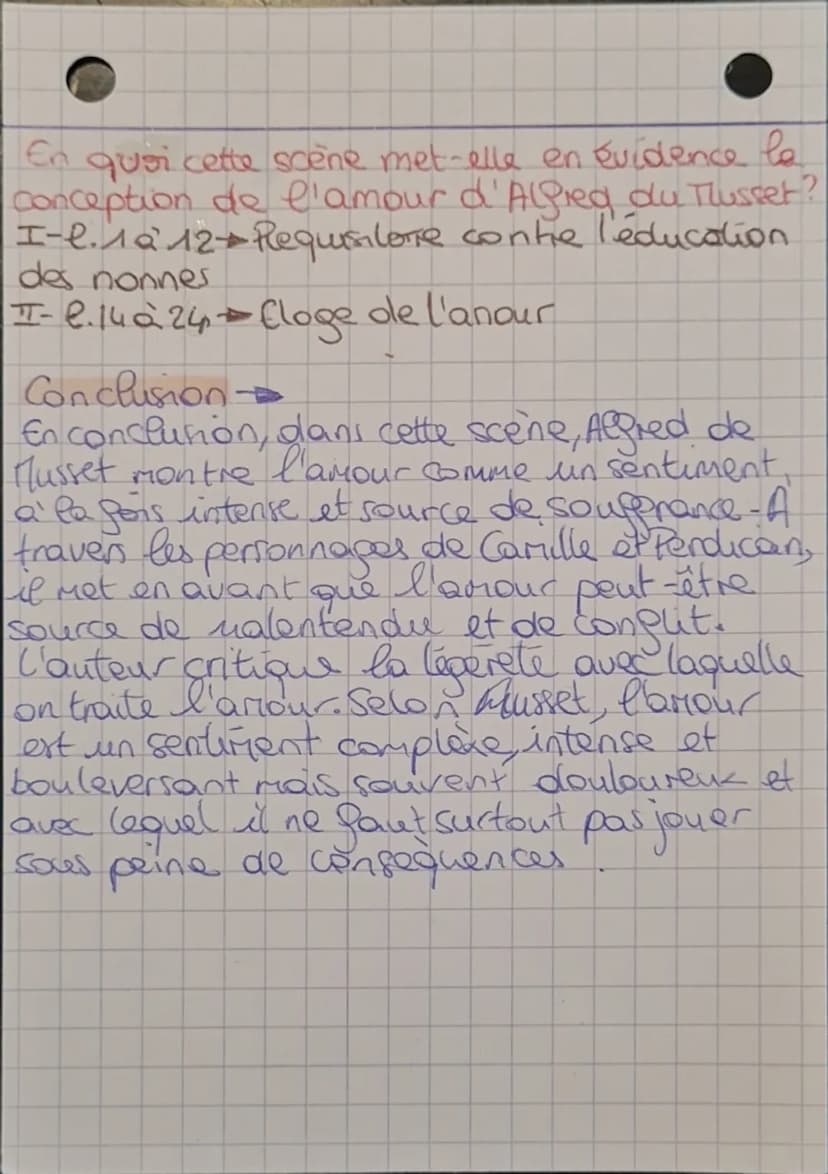 En quoi cette scène met-elle en évidence la
conception de l'amour d'Alfred du Musset?
I-l.1 à 12→Requisitoire contre l'éducation
des nonnes
II- l.14 à 24→Eloge de l'amour
Conclusion→
En conclusion, dans cette scène, Alfred de
Musset montre l'amour comme un sentiment,
à la fois intense et source de souffrance. A
travers les personnages de Camille et Perdican,
il met en avant que l'amour peut-être
source de malentendu et de conflit.
L'auteur critique la légèreté avec laquelle
on traite l'amour. Selon Musset, l'amour
est un sentiment complexe, intense et
bouleversant mais souvent douloureux et
avec lequel il ne faut surtout pas jouer
sous peine de conséquences.